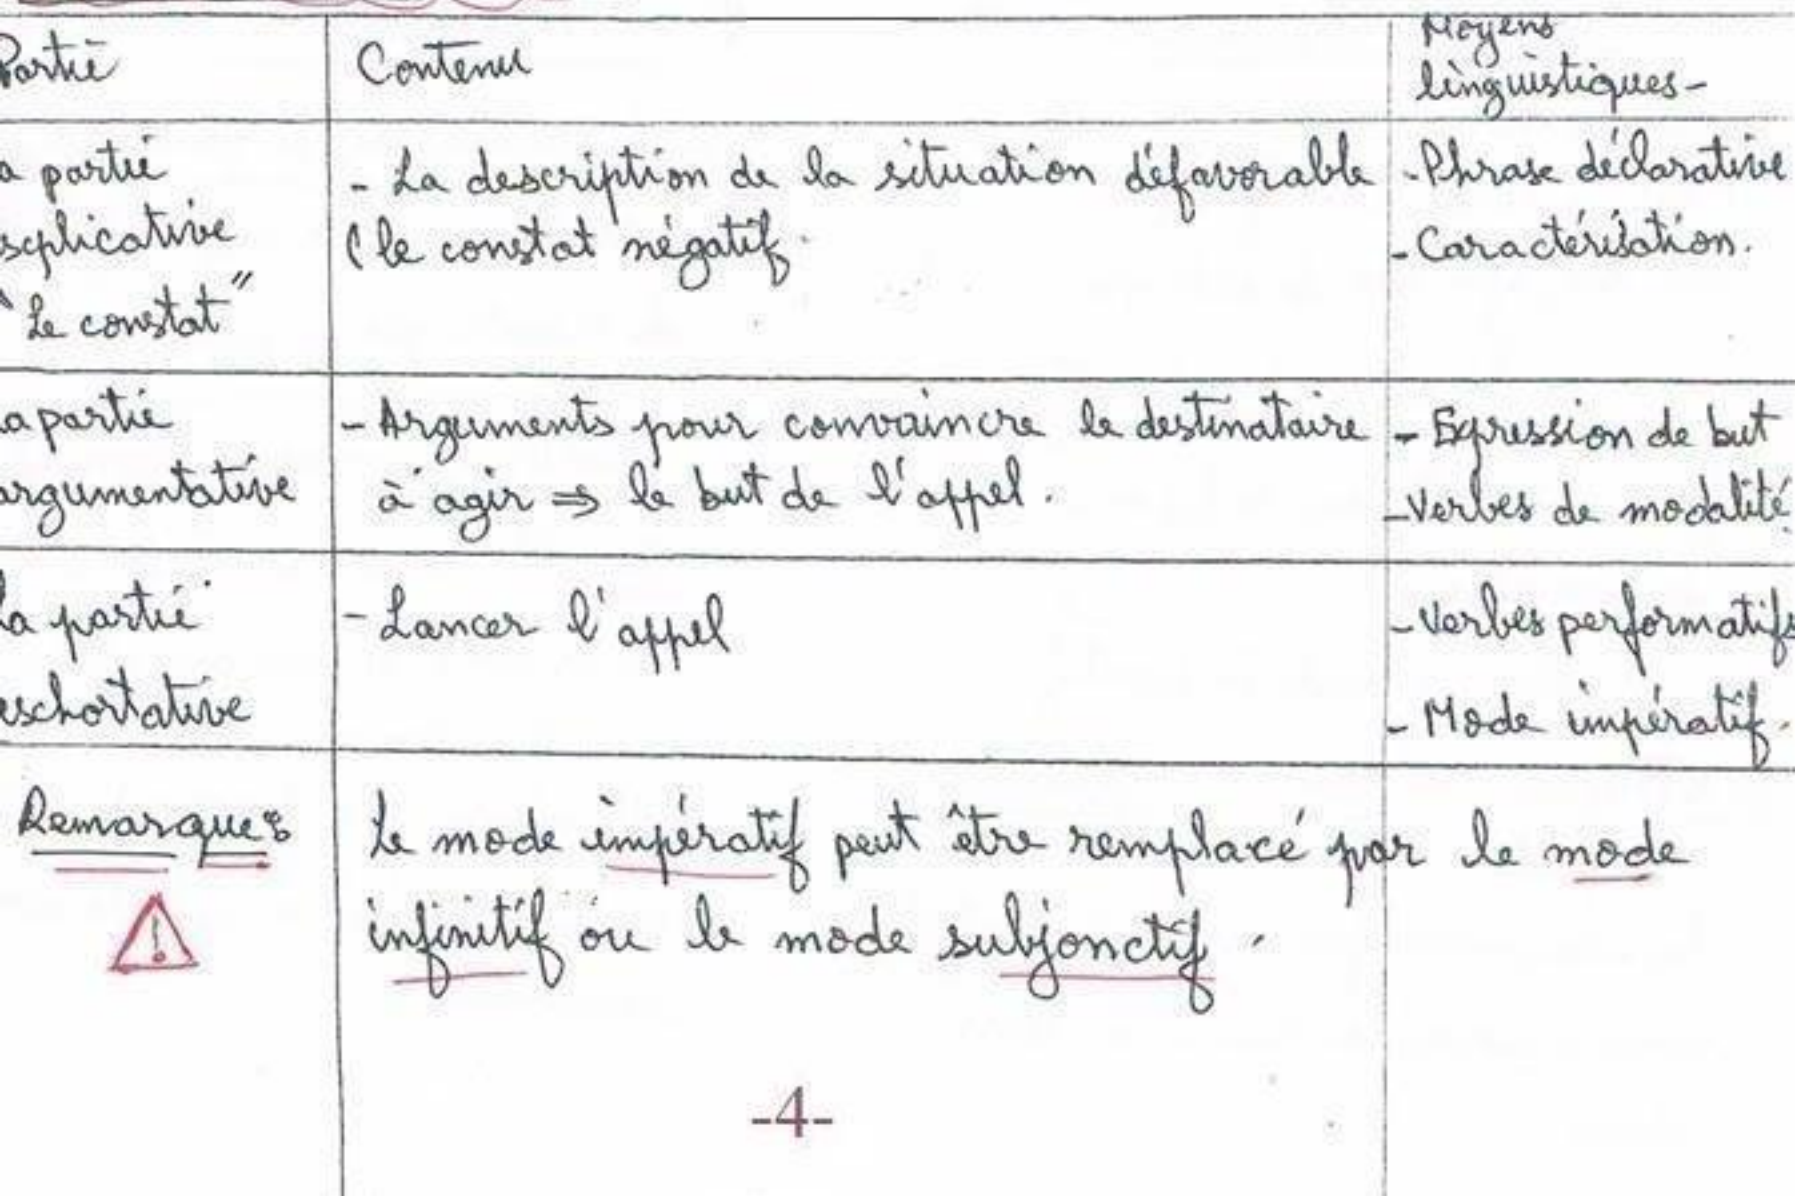 Partie
Contenu
Moyens
linguistiques-
a partie
explicative
"Le constat"
- La description de la situation défavorable
(le constat négatif.
- Phrase déclarative
- Caractérisation.
La partie
argumentative
- Arguments pour convaincre le destinataire
à agir ⇒ le but de l'appel.
- Expression de but
- Verbes de modalité.
La partie
exhortative
- Lancer l'appel
- Verbes performatifs
- Mode impératif.
Remarque:
!
Le mode impératif peut être remplacé par le mode
infinitif ou le mode subjonctif.
-4-